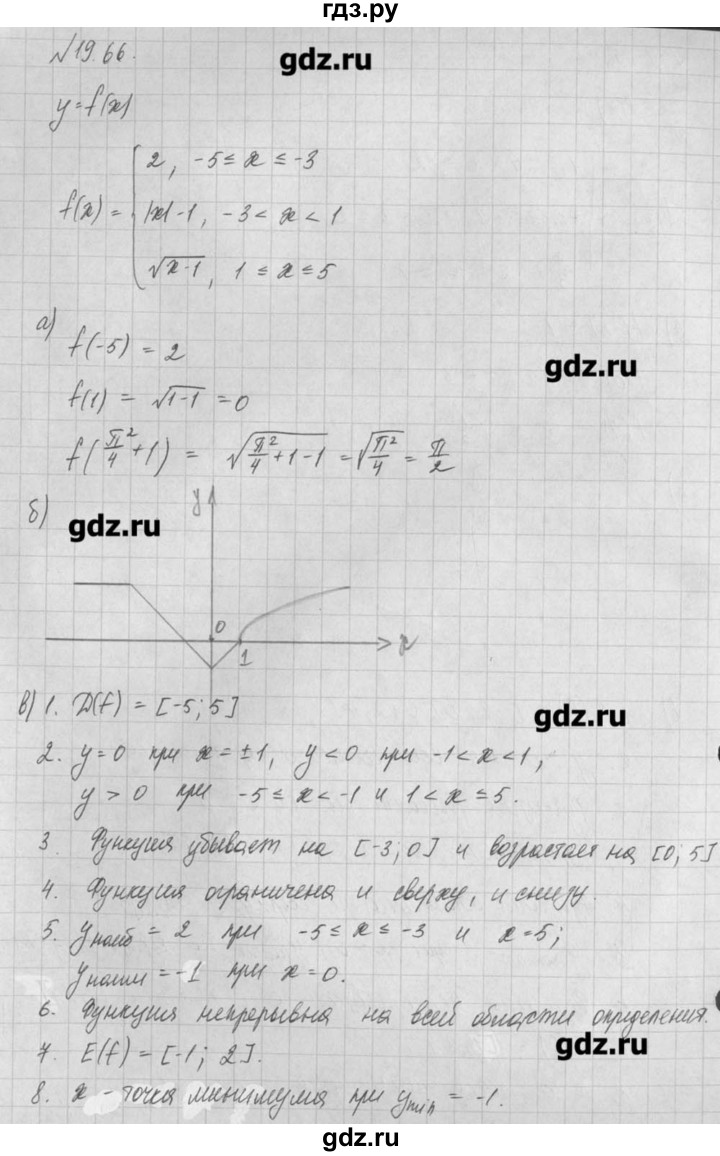 гдз.ру
№19.66.
gdz.ru
y=f(x)
2, -5 ≤ x ≤ -3
f(x) = |x|-1, -3 < x < 1
√x-1, 1 ≤ x ≤ 5
а)
f(-5) = 2
gdz.ru
f(1) = √1-1 = 0
f(π²/4+1) = √π²/4+1-1 = √π²/4 = π/2
y
б) gdz.ru
0
x
1
в) 1. D(f) = [-5; 5]
gdz.ru
2. y=0 при x=±1, y<0 при -1<x<1,
y > 0 при -5≤x<-1 и 1<x≤5.
3. Функция убывает на [-3; 0] и возрастает на [0; 5]
4. Функция ограничена и сверху, и снизу.
5. yнаиб = 2 при -5≤x≤-3 и x=5;
yнаим = -1 при x=0.
6. Функция непрерывна на всей области определения.
7. E(f) = [-1; 2].
gdz.ru
8. x - точка минимума при ymin = -1.
gdz.ru